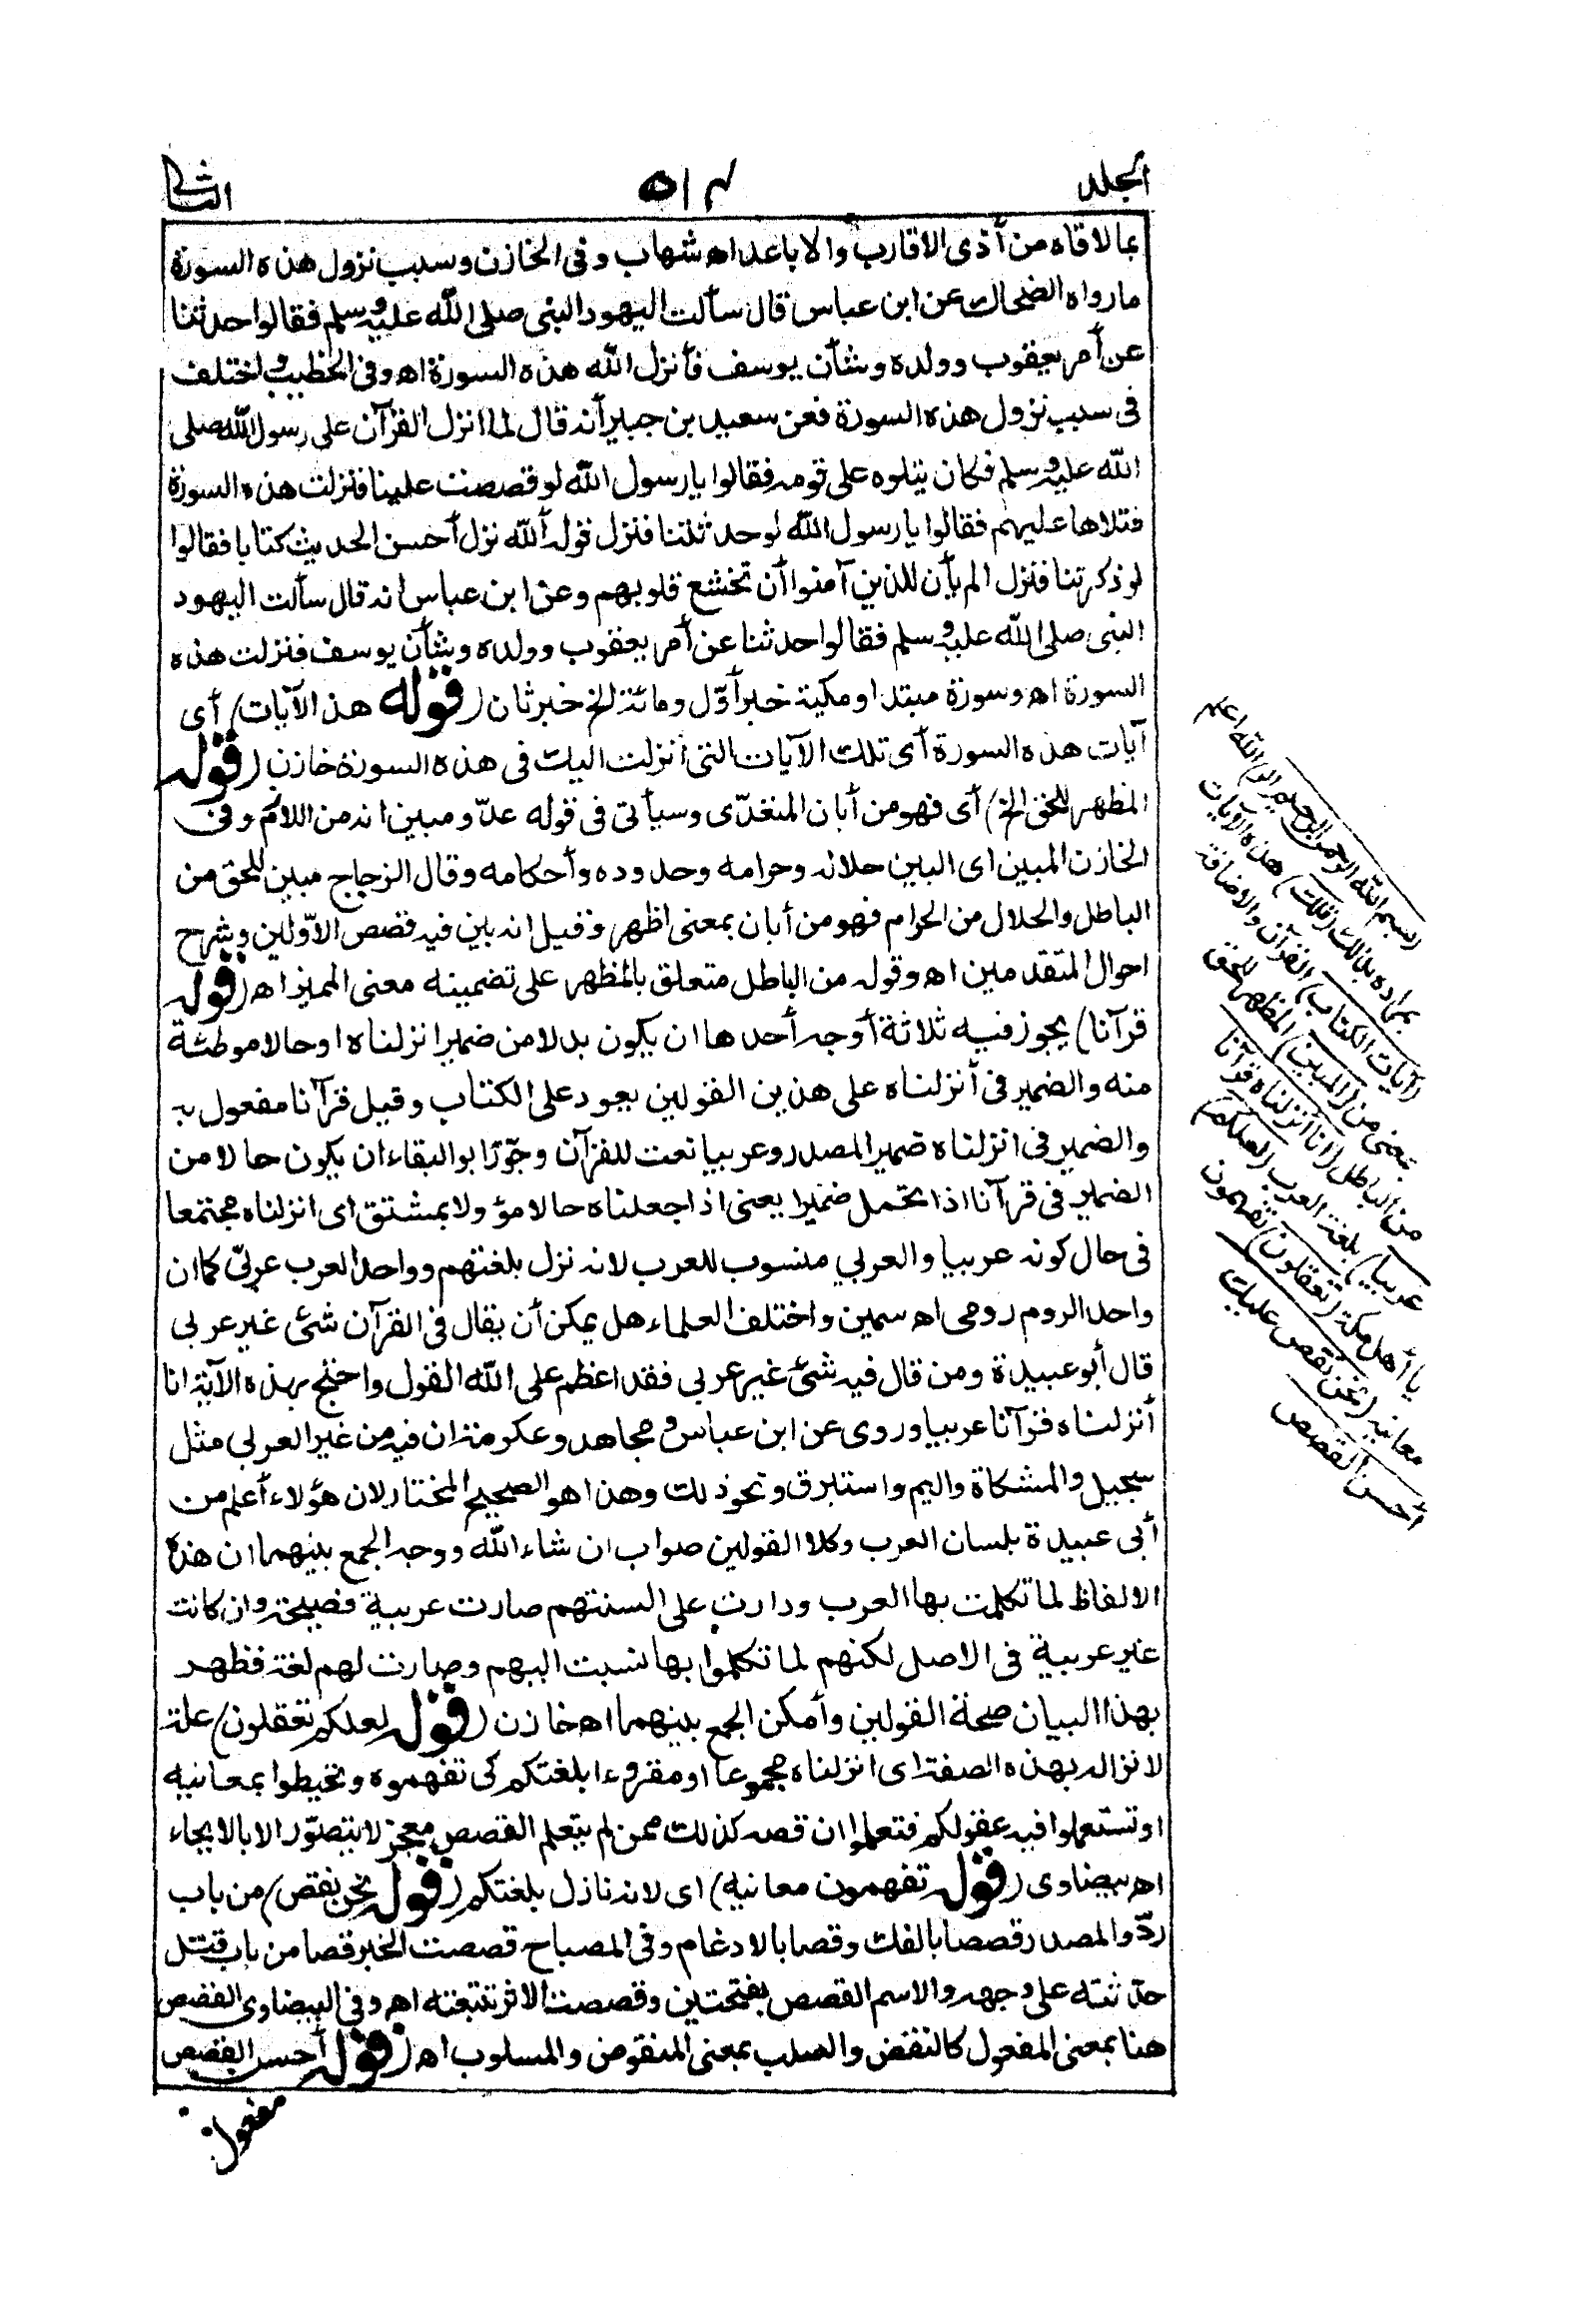 الجلد ٥١٢ الثانى
بما لاقاه من أذى الاقارب والاباعد اه شهاب وفى الخازن وسبب نزول هذه السورة
ما رواه الضحاك عن ابن عباس قال سألت اليهود النبى صلى الله عليه وسلم فقالوا حدثنا
عن أمر يعقوب وولده وشأن يوسف فأنزل الله هذه السورة اه وفى الخطيب واختلف
فى سبب نزول هذه السورة فعن سعيد بن جبير أنه قال لما انزل القرآن على رسول الله صلى
الله عليه وسلم فكان يتلوه على قومه فقالوا يا رسول الله لو قصصت علينا فنزلت هذه السورة
فتلاها عليهم فقالوا يا رسول الله لو حدثتنا فنزل قوله ألله نزل أحسن الحديث كتابا فقالوا
لو ذكرتنا فنزل الم يأن للذين آمنوا أن تخشع قلوبهم وعن ابن عباس انه قال سألت اليهود
النبى صلى الله عليه وسلم فقالوا حدثنا عن أمر يعقوب وولده وشأن يوسف فنزلت هذه
السورة اه وسورة مبتدا ومكية خبر أوّل ومائة الخ خبر ثان (قوله هذه الآيات) أى
آيات هذه السورة أى تلك الآيات التى أنزلت اليك فى هذه السورة خازن (قوله
المظهر للحق الخ) أى فهو من أبان المتعدّى وسيأتى فى قوله عدّو مبين انه من اللازم وفى
الخازن المبين اى البين حلاله وحرامه وحدوده وأحكامه وقال الزجاج مبين للحق من
الباطل والحلال من الحرام فهو من أبان بمعنى اظهر وقيل انه بين فيه قصص الاوّلين وشرح
احوال المتقدمين اه وقوله من الباطل متعلق بالمظهر على تضمينه معنى المميز اه (قوله
قرآنا) يجوز فيه ثلاثة أوجه أحدها ان يكون بدلا من ضمير انزلناه او حالا موطئة
منه والضمير فى أنزلناه على هذين القولين يعود على الكتاب وقيل قرآنا مفعول به
والضمير فى انزلناه ضمير المصدر وعربيا نعت للقرآن وجوّز ابو البقاء ان يكون حالا من
الضمير فى قرآنا اذا تحمل ضميرا يعنى اذا جعلناه حالا مؤولا بمشتق اى انزلناه مجتمعا
فى حال كونه عربيا والعربي منسوب للعرب لانه نزل بلغتهم وواحد العرب عربىّ كما ان
واحد الروم رومى اه سمين واختلف العلماء هل يمكن أن يقال فى القرآن شئ غير عربى
قال أبو عبيدة ومن قال فيه شئ غير عربى فقد اعظم على الله القول واحتج بهذه الآية انا
أنزلناه قرآنا عربيا وروى عن ابن عباس ومجاهد وعكرمة ان فيه من غير العربى مثل
سجيل والمشكاة واليم واستبرق ونحو ذلك وهذا هو الصحيح المختار لان هؤلاء أعلم من
أبى عبيدة بلسان العرب وكلا القولين صواب ان شاء الله ووجه الجمع بينهما ان هذه
الالفاظ لما تكلمت بها العرب ودارت على السنتهم صارت عربية فصيحة وان كانت
غير عربية فى الاصل لكنهم لما تكلموا بها نسبت اليهم وصارت لهم لغة فظهر
بهذا البيان صحة القولين وأمكن الجمع بينهما اه خازن (قوله لعلكم تعقلون) علة
لانزاله بهذه الصفة اى انزلناه مجموعا او مقروءا بلغتكم كى تفهموه وتحيطوا بمعانيه
او تستعملوا فيه عقولكم فتعلموا ان قصه كذلك ممن لم يتعلم القصص معجز لا يتصوّر الا بالايحاء
اه بيضاوى (قوله تفهمون معانيه) اى لانه نازل بلغتكم (قوله نحن نقص) من باب
ردّ والمصدر قصصا بالفك وقصا بالادغام وفى المصباح قصصت الخبر قصا من باب قتل
حدّثته على وجهه والاسم القصص بفتحتين وقصصت الاثر تتبعته اه وفى البيضاوى القصص
هنا بمعنى المفعول كالنقض والسلب بمعنى المنقوض والمسلوب اه (قوله أحسن القصص
مفعول
(بسم الله الرحمن الرحيم الر) الله اعلم
بمراده بذلك (تلك) هذه الآيات
(آيات الكتاب) القرآن والاضافة
بمعنى من (المبين) المظهر للحق
من الباطل (انا انزلناه قرآنا
عربيا) بلغة العرب (لعلكم)
يا أهل مكة (تعقلون) تفهمون
معانيه (نحن نقص عليك
أحسن القصص